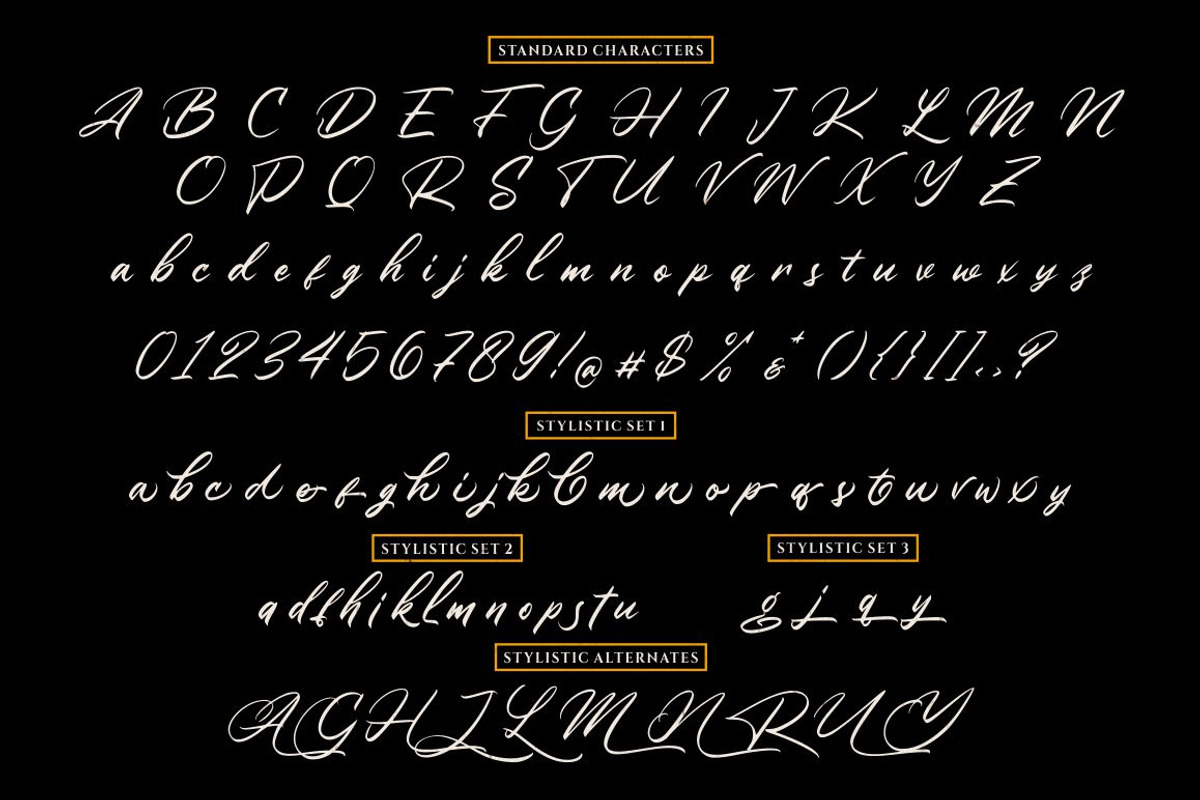 STANDARD CHARACTERS
A B C D E F G H I J K L M N
O P Q R S T U V W X Y Z
a b c d e f g h i j k l m n o p q r s t u v w x y z
0 1 2 3 4 5 6 7 8 9 ! @ # $ % & * ( ) { } [ ] , . ?
STYLISTIC SET 1
a b c d e f g h i j k l m n o p r q s t u v w x y
STYLISTIC SET 2
STYLISTIC SET 3
a d f h i k l m n o p s t u
g j q y
STYLISTIC ALTERNATES
A G H J L M N R U Y